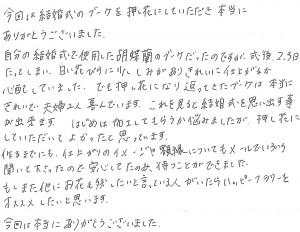 今回は結婚式のブーケを押し花にしていただき本当に
ありがとうございました。
自分の結婚式で使用した胡蝶蘭のブーケだったのですが、式後、2,3日
たってしまい、白い花びらに少ししみがありきれいに仕上がるか
心配していました。でも押し花になり返ってきたブーケは本当に
きれいで夫婦2人喜んでいます。これを見ると結婚式を思い出す事
が出来ます。はじめは加工してもらうか悩みましたが、押し花に
していただいてよかったと思っています。
作るまでにも、仕上がりのイメージや額縁についてもメールでいろいろ
聞いて下さったので安心してたのみ、待つことができました。
もしまた他にお花を残したいと言っている人がいたらハッピーフラワーを
オススメしたいと思います。
今回は本当にありがとうございました。